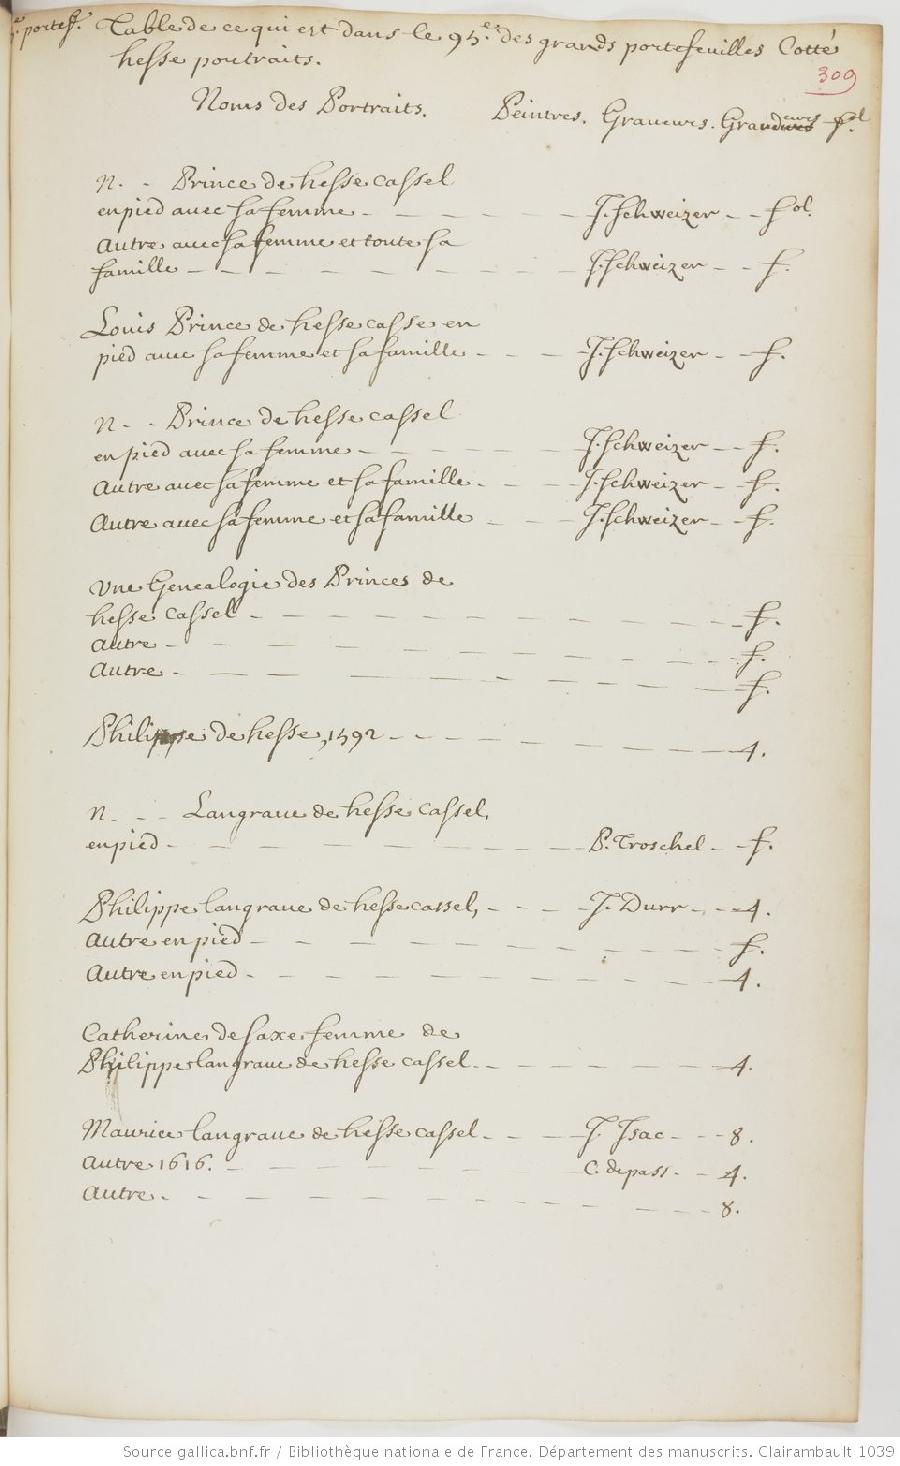 e. portef. Table de ce qui est dans le 95.e des grands portefeuilles Cotté
hesse poutraits.
309
Noms des Portraits. Peintres. Graveurs. Grandeurs fol.
N. - Prince de hesse cassel
en pied avec sa femme - - - - - J. Schweizer - - fol.
Autre avec sa femme et toute sa
famille - - - - - - - - - J. Schweizer - - f.
Louis Prince de hesse casse en
pied avec sa femme et sa famille - - - J. Schweizer - - f.
N - - Prince de hesse cassel
en pied avec sa femme - - - - - - J. Schweizer - - f.
Autre avec sa femme et sa famille - - - J. Schweizer - - f.
Autre avec sa femme et sa famille - - - J. Schweizer - - f.
Une Genealogie des Princes de
hesse cassel - - - - - - - - - - - f.
Autre - - - - - - - - - - - f.
Autre - - - - - - - - - - - f.
Philippe de hesse, 1592 - - - - - - - - - 4.
N. - - Langrave de hesse cassel,
en pied - - - - - - - - - P. Troschel - - f.
Philippe langrave de hesse cassel, - - - J. Durr - - 4.
Autre en pied - - - - - - - - - - f.
Autre en pied - - - - - - - - - - 4.
Catherine de saxe femme de
Philippe langrave de hesse cassel - - - - - - 4.
Maurice langrave de hesse cassel - - - J. Isac - - - 8.
Autre 1616. - - - - - - - - C. de pass. - - 4.
Autre - - - - - - - - - - - 8.
Source gallica.bnf.fr / Bibliothèque nationale de France. Département des manuscrits. Clairambault 1039